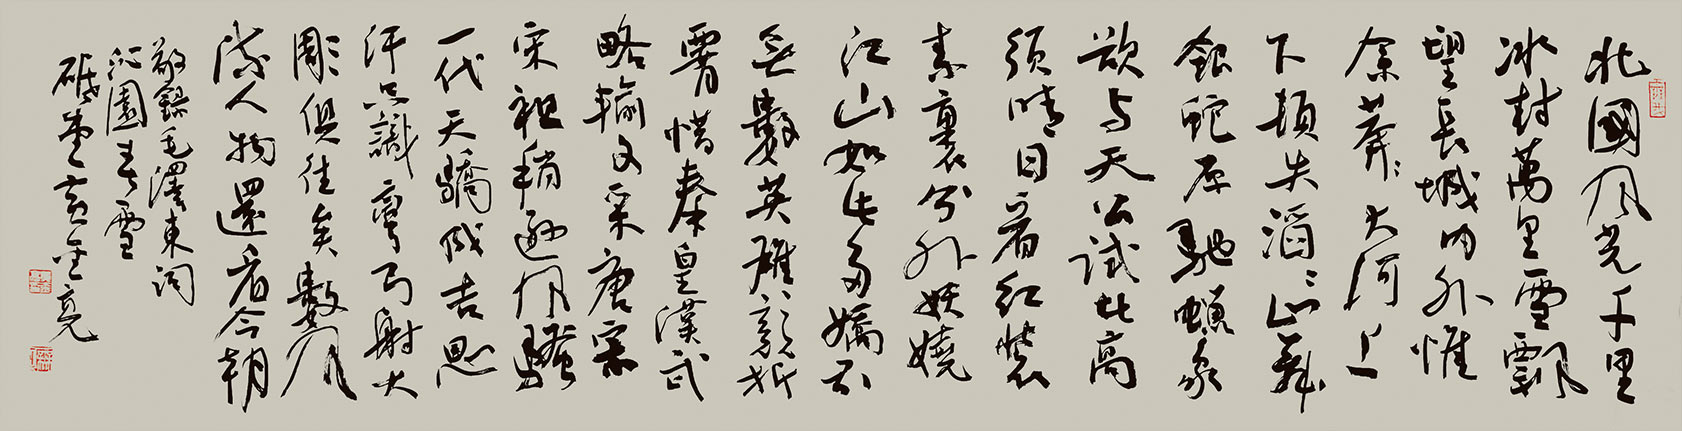 北國風光千里
冰封萬里雪飄
望長城内外惟
余莽〻大河上
下頓失滔〻山舞
銀蛇原馳蠟象
欲与天公試比高
須晴日看紅裝
素裹分外妖嬈
江山如此多嬌引
無數英雄競折
腰惜秦皇漢武
略輸文采唐宗
宋祖稍遜風騷
一代天驕成吉思
汗只識彎弓射大
雕俱往矣數風
流人物還看今朝
敬錄毛澤東詞
沁園春雪
堂黄金亮